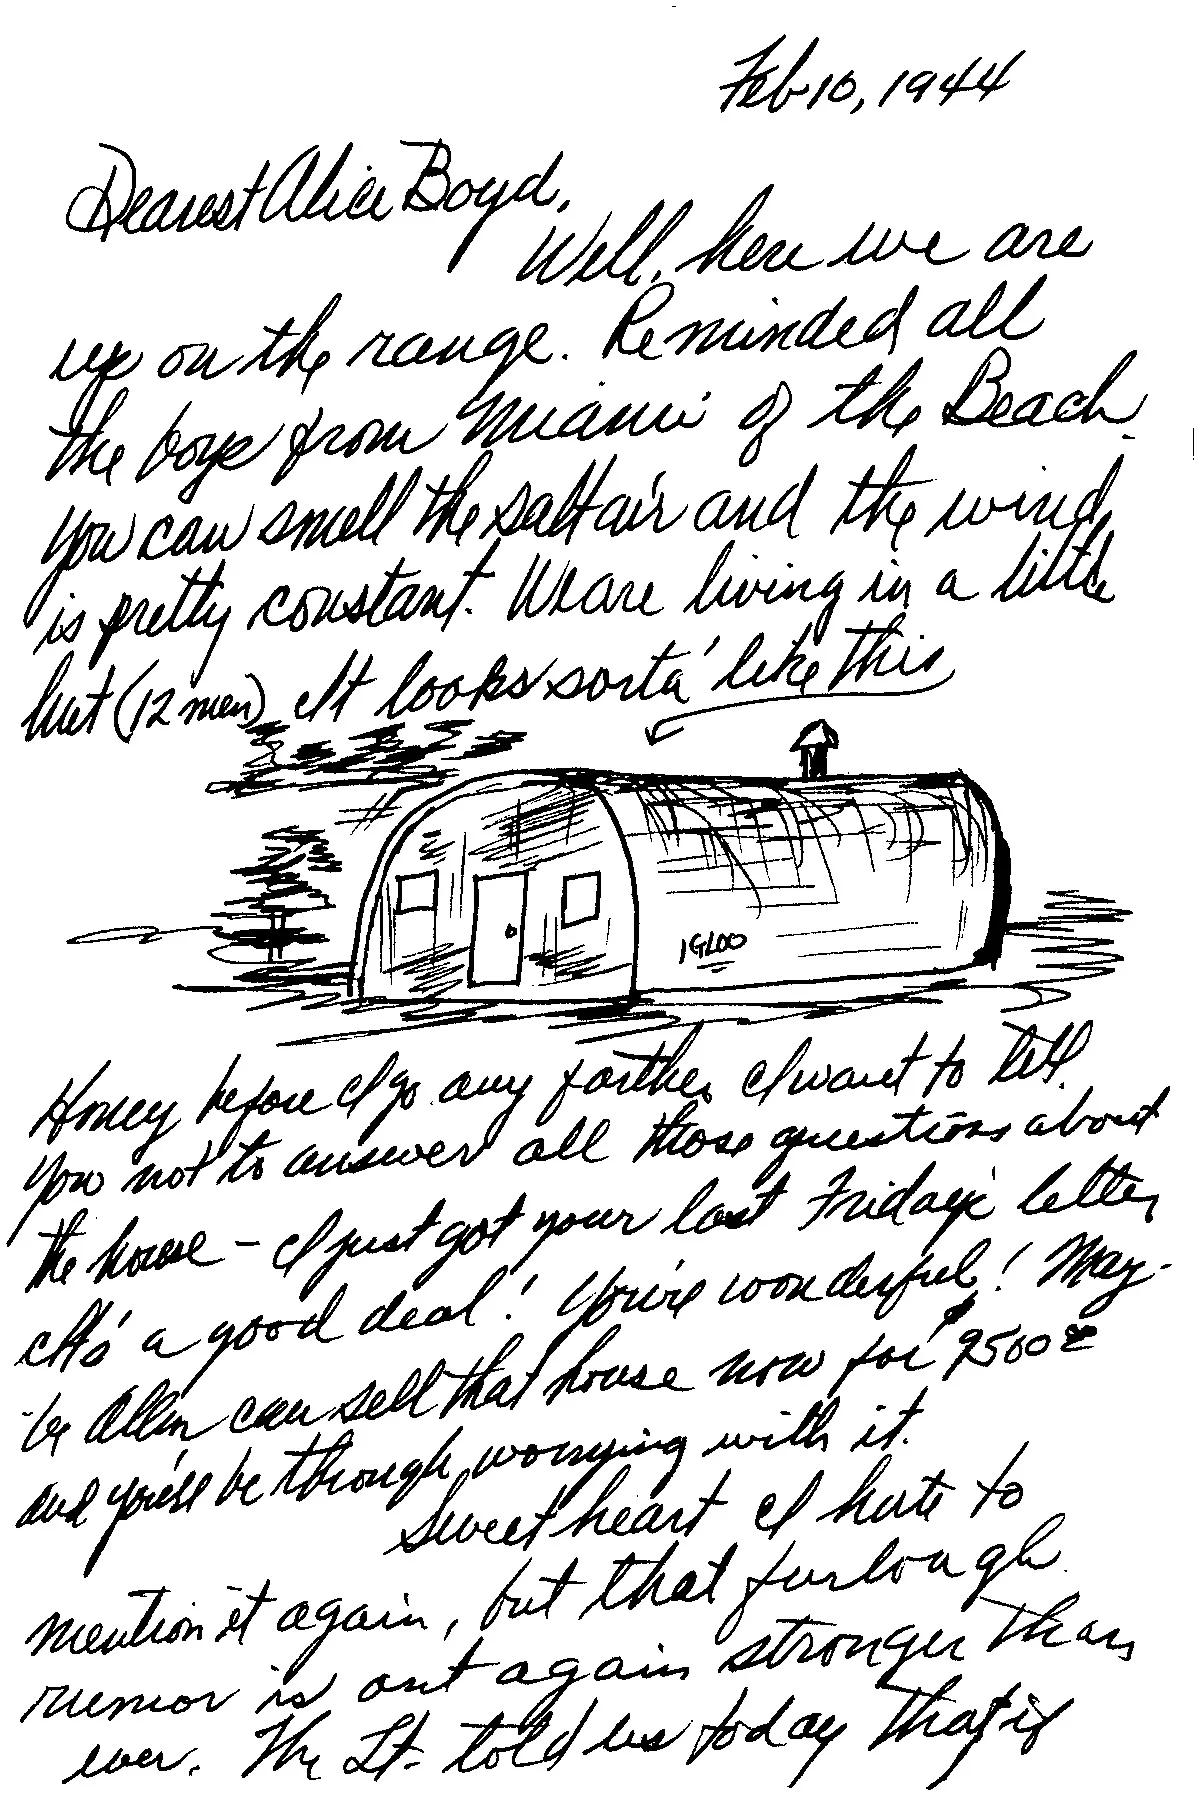 Feb 10, 1944
Dearest Alice Boyd,
Well, here we are
up on the range. Reminded all
the boys from Miami of the Beach.
You can smell the salt air and the wind
is pretty constant. We are living in a little
hut (12 men) It looks sorta' like this
IGLOO
Honey before I go any farther I want to tell
you not to answer all those questions about
the house – I just got your last Friday's letter
It's a good deal! You're wonderful! May-
be Allen can sell that house now for $9500 00
and you'll be through worrying with it.
Sweetheart I hate to
mention it again, but that furlough
rumor is out again stronger than
ever. The Lt. told us today that if